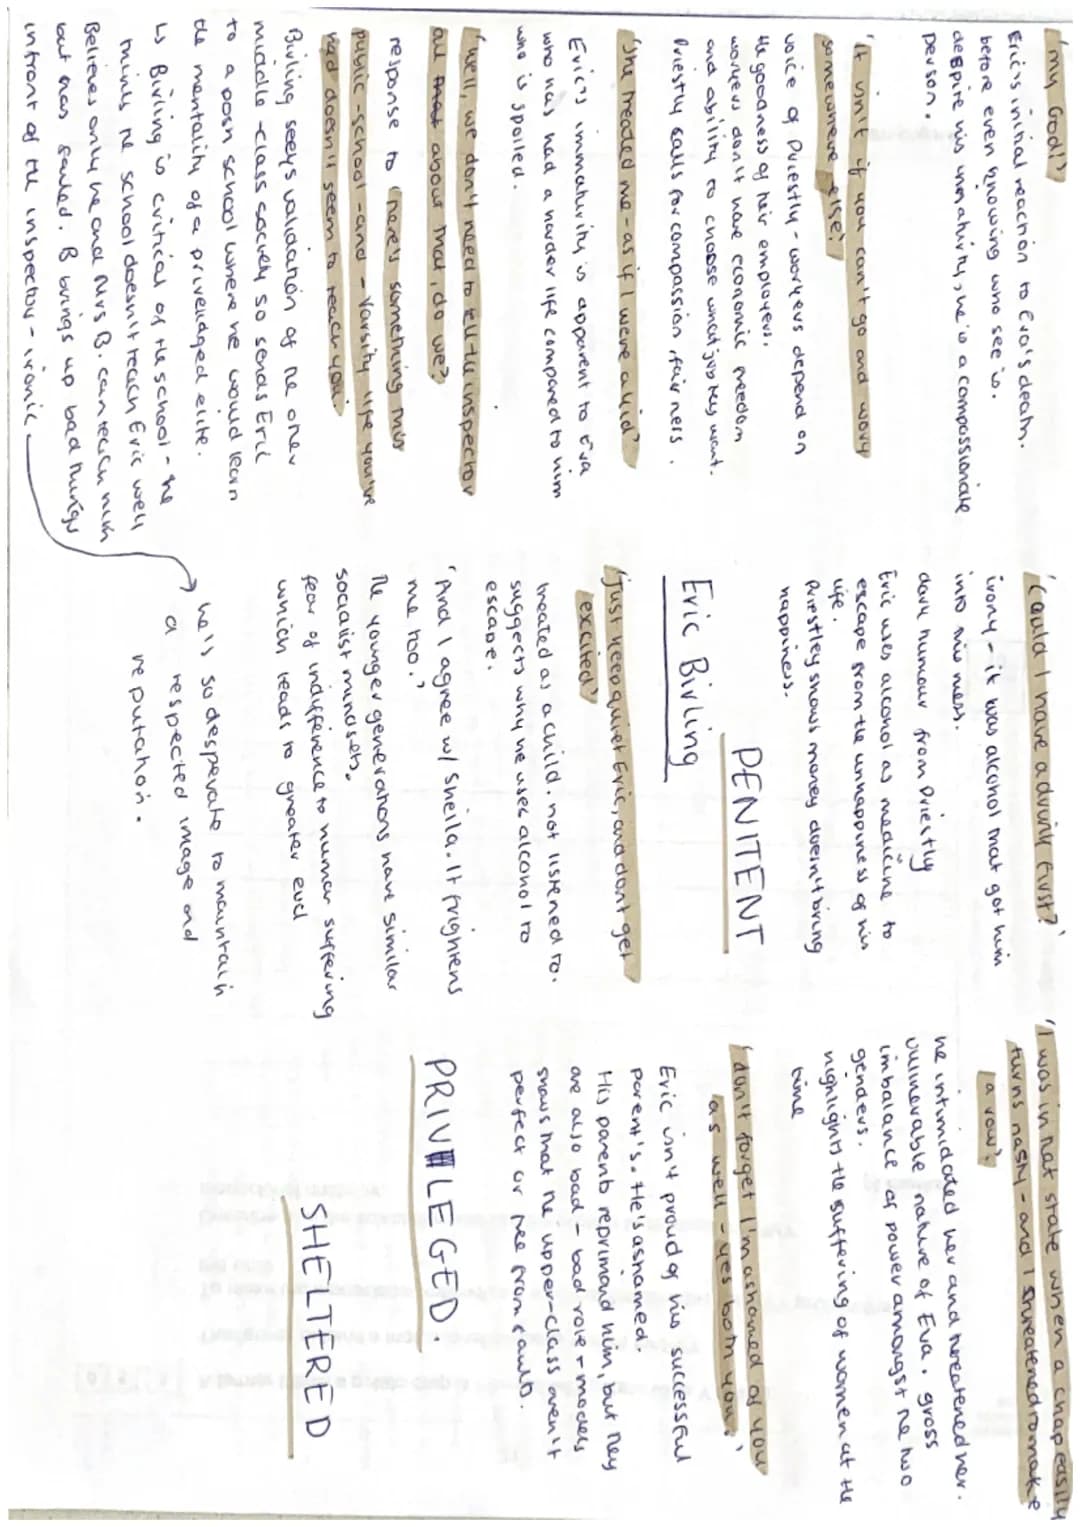 'my God!'
Eric's initial reaction to Eva's death.
before even knowing who see is.
despite his immaturity, he is a compassionate
person.
'it isn't if you can't go and work
somewhere else?'
voice of Priestly - workers depend on
the goodness of their employers.
workers don't have economic freedom
and ability to choose what job they want.
Priestly calls for compassion, fairness.
'She treated me - as if I were a kid'
Eric's immaturity is apparent to Eva
who has had a harder life compared to him
who is spoiled.
'well, we don't need to tell the inspector
all about that, do we?'
response to 'here's something this
public-school-and-Varsity life you've
had doesn't seem to teach you'
Birling seeks validation of the other
middle-class society so sends Eric
to a posh school where he would learn
the mentality of a priveadged elite.
Ls Birling is critical of the school - he
thinks the school doesn't teach Eric well
Believes only he and Mrs B. can teach him
but has failed. B brings up bad things
infront of the inspector - ironic
he's so desperate to maintain
a respected image and
reputation.
'Could I have a drink first?'
irony - it was alcohol that got him
into this mess.
dark humour from Priestly
Eric uses alcohol as medicine to
escape from the unhappiness of his
life.
Priestley shows money doesn't bring
happiness.
PENITENT
Eric Birling
'Just keep quiet Eric, and don't get
excited'
treated as a child. not listened to.
suggests why he uses alcohol to
escape.
'And I agree w/ Sheilla. It frightens
me too.'
The younger generations have similar
socialist mindsets.
fear of indifference to human suffering
which leads to greater evil
'I was in that state when a chap easily
turns nasty - and I threatened to make
a row'.
he intimidated her and threatened her.
vulnerable nature of Eva. gross
imbalance of power amongst the two
genders.
highlights the suffering of women at the
time
'don't forget I'm ashamed of you
as well - yes both you.'
Eric isn't proud of his successful
parent's. He's ashamed.
His parents reprimand him, but they
are also bad - bad role-models
shows that the upper-class aren't
perfect or free from faults.
PRIVILEGED.
SHELTERED